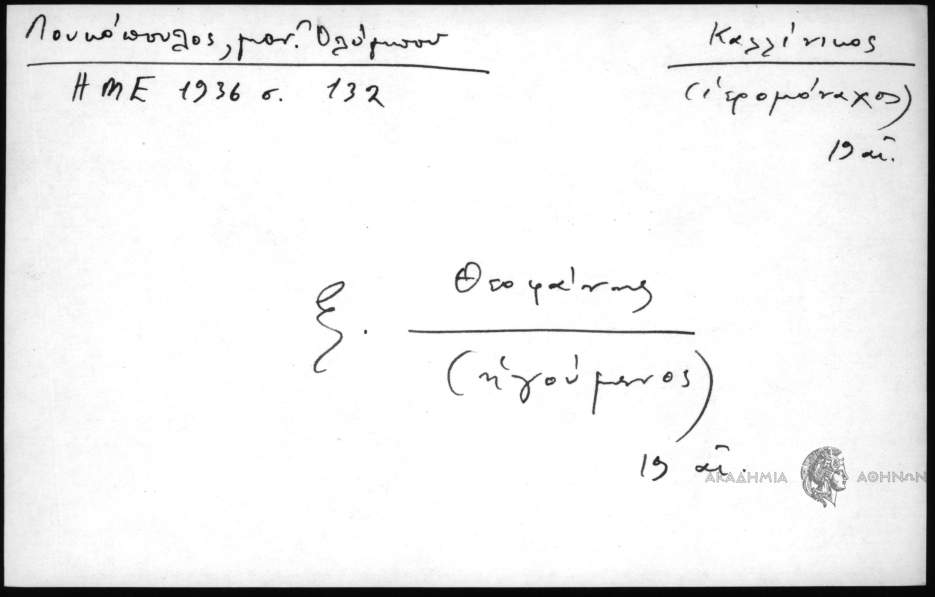 Λουκόπουλος, μον. Ὀλύμπου
ΗΜΕ 1936 σ. 132
Καλλίνικος
(ἱερομόναχος)
19 αἰ.
ξ. Θεοφάνης
(ἡγούμενος)
19 αἰ.
ΑΚΑΔΗΜΙΑ ΑΘΗΝΩΝ